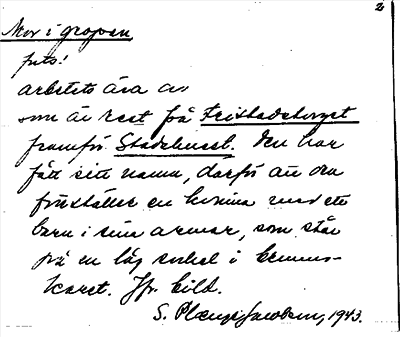 2
Mor i gropen
puts!
arbetets ära av
som är rest på Fristadstorget
framför Stadshuset. Den har
fått sitt namn, därför att den
föreställer en kvinna med ett
barn i sina armar, som står
på en låg sockel i brunns-
karet. Jfr bild.
S. 1943.